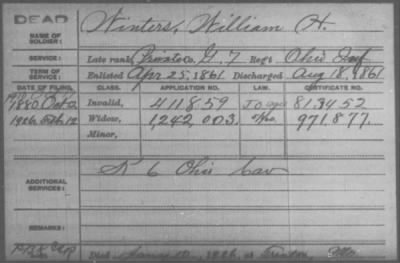 DEAD
NAME OF SOLDIER: Winters, William H.
SERVICE: Late rank, Private Co. G. 7 Reg't Ohio Inf
TERM OF SERVICE: Enlisted Apr 25, 1861 Discharged Aug 18, 1861
DATE OF FILING. CLASS. APPLICATION NO. LAW. CERTIFICATE NO.
1880 Oct 2 Invalid, 411859 813452
1926 Feb 12 Widow, 1,242,003. 971877.
Minor,
ADDITIONAL SERVICES: K 6 Ohio Cav
REMARKS:
Died 1926, at Trenton, Mo.